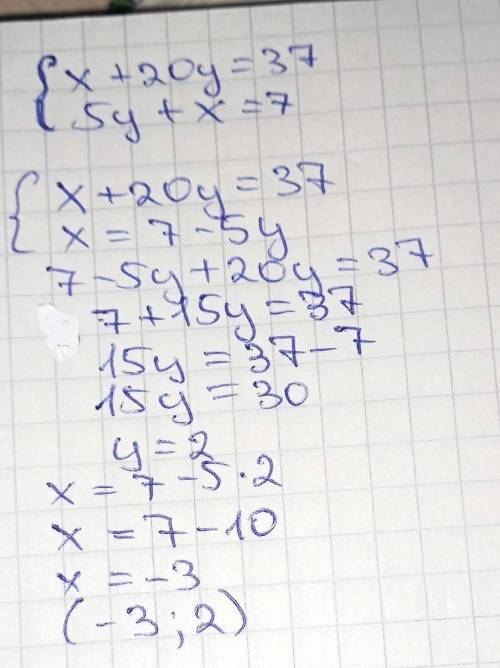 { x + 20y = 37
5y + x = 7
{ x + 20y = 37
x = 7 - 5y
7 - 5y + 20y = 37
7 + 15y = 37
15y = 37 - 7
15y = 30
y = 2
x = 7 - 5 · 2
x = 7 - 10
x = -3
(-3; 2)